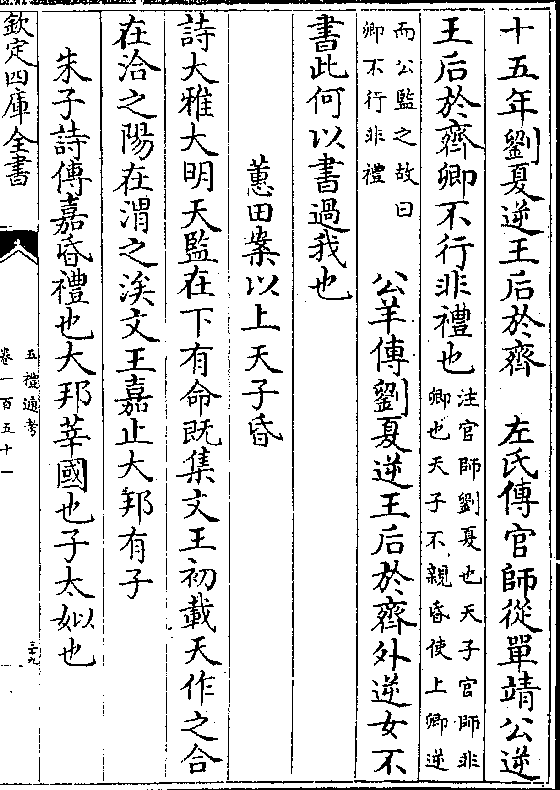 十五年劉夏逆王后於齊　左氏傳官師從單靖公逆
王后於齊卿不行非禮也
注官師劉夏也天子官師非
卿也天子不親昏使上卿逆
而公監之故曰
卿不行非禮
公羊傳劉夏逆王后於齊外逆女不
書此何以書過我也
蕙田案以上天子昏
詩大雅大明天監在下有命既集文王初載天作之合
在洽之陽在渭之涘文王嘉止大邦有子
朱子詩傳嘉昏禮也大邦莘國也子太姒也
欽定四庫全書
五禮通考
卷一百五十一